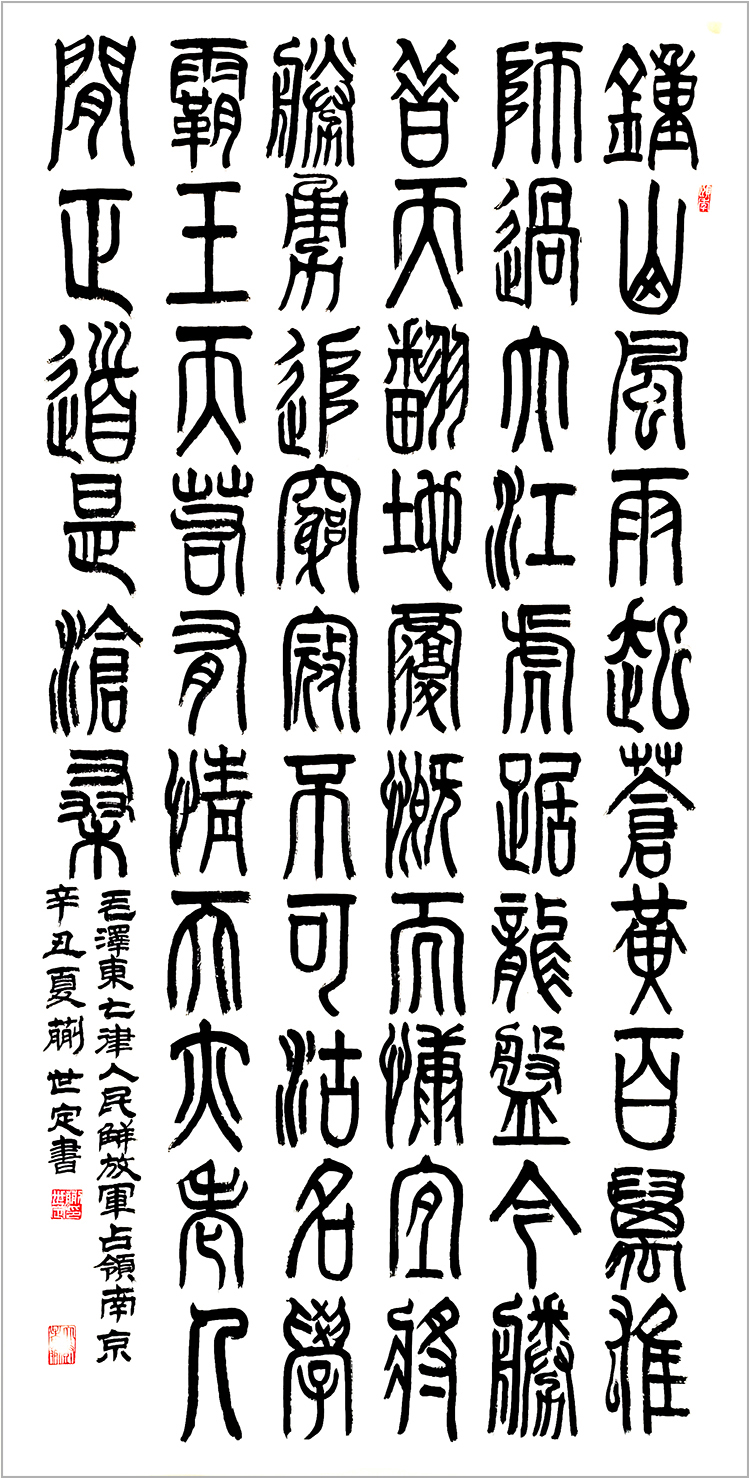 鍾山風雨起蒼黃百萬雄
師過大江虎踞龍盤今勝
昔天翻地覆慨而慷宜將
勝勇追窮寇不可沽名學
霸王天若有情天亦老人
閒正道是滄桑
毛澤東七律人民解放軍占領南京
辛丑夏蒯世定書